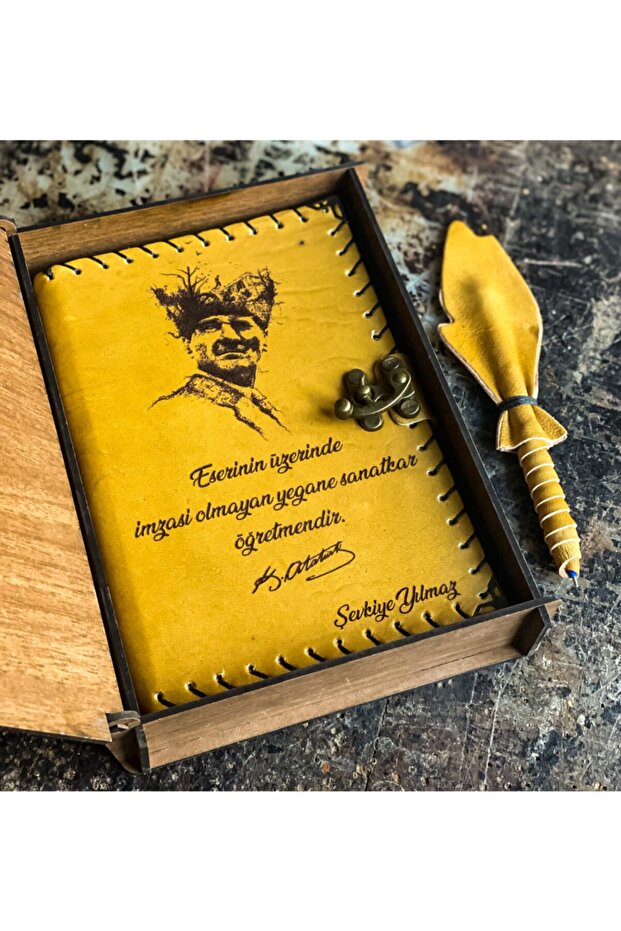 Eserinin üzerinde
imzasi olmayan yegane sanatkar
öğretmendir.
K. Atatürk
Şevkiye Yılmaz